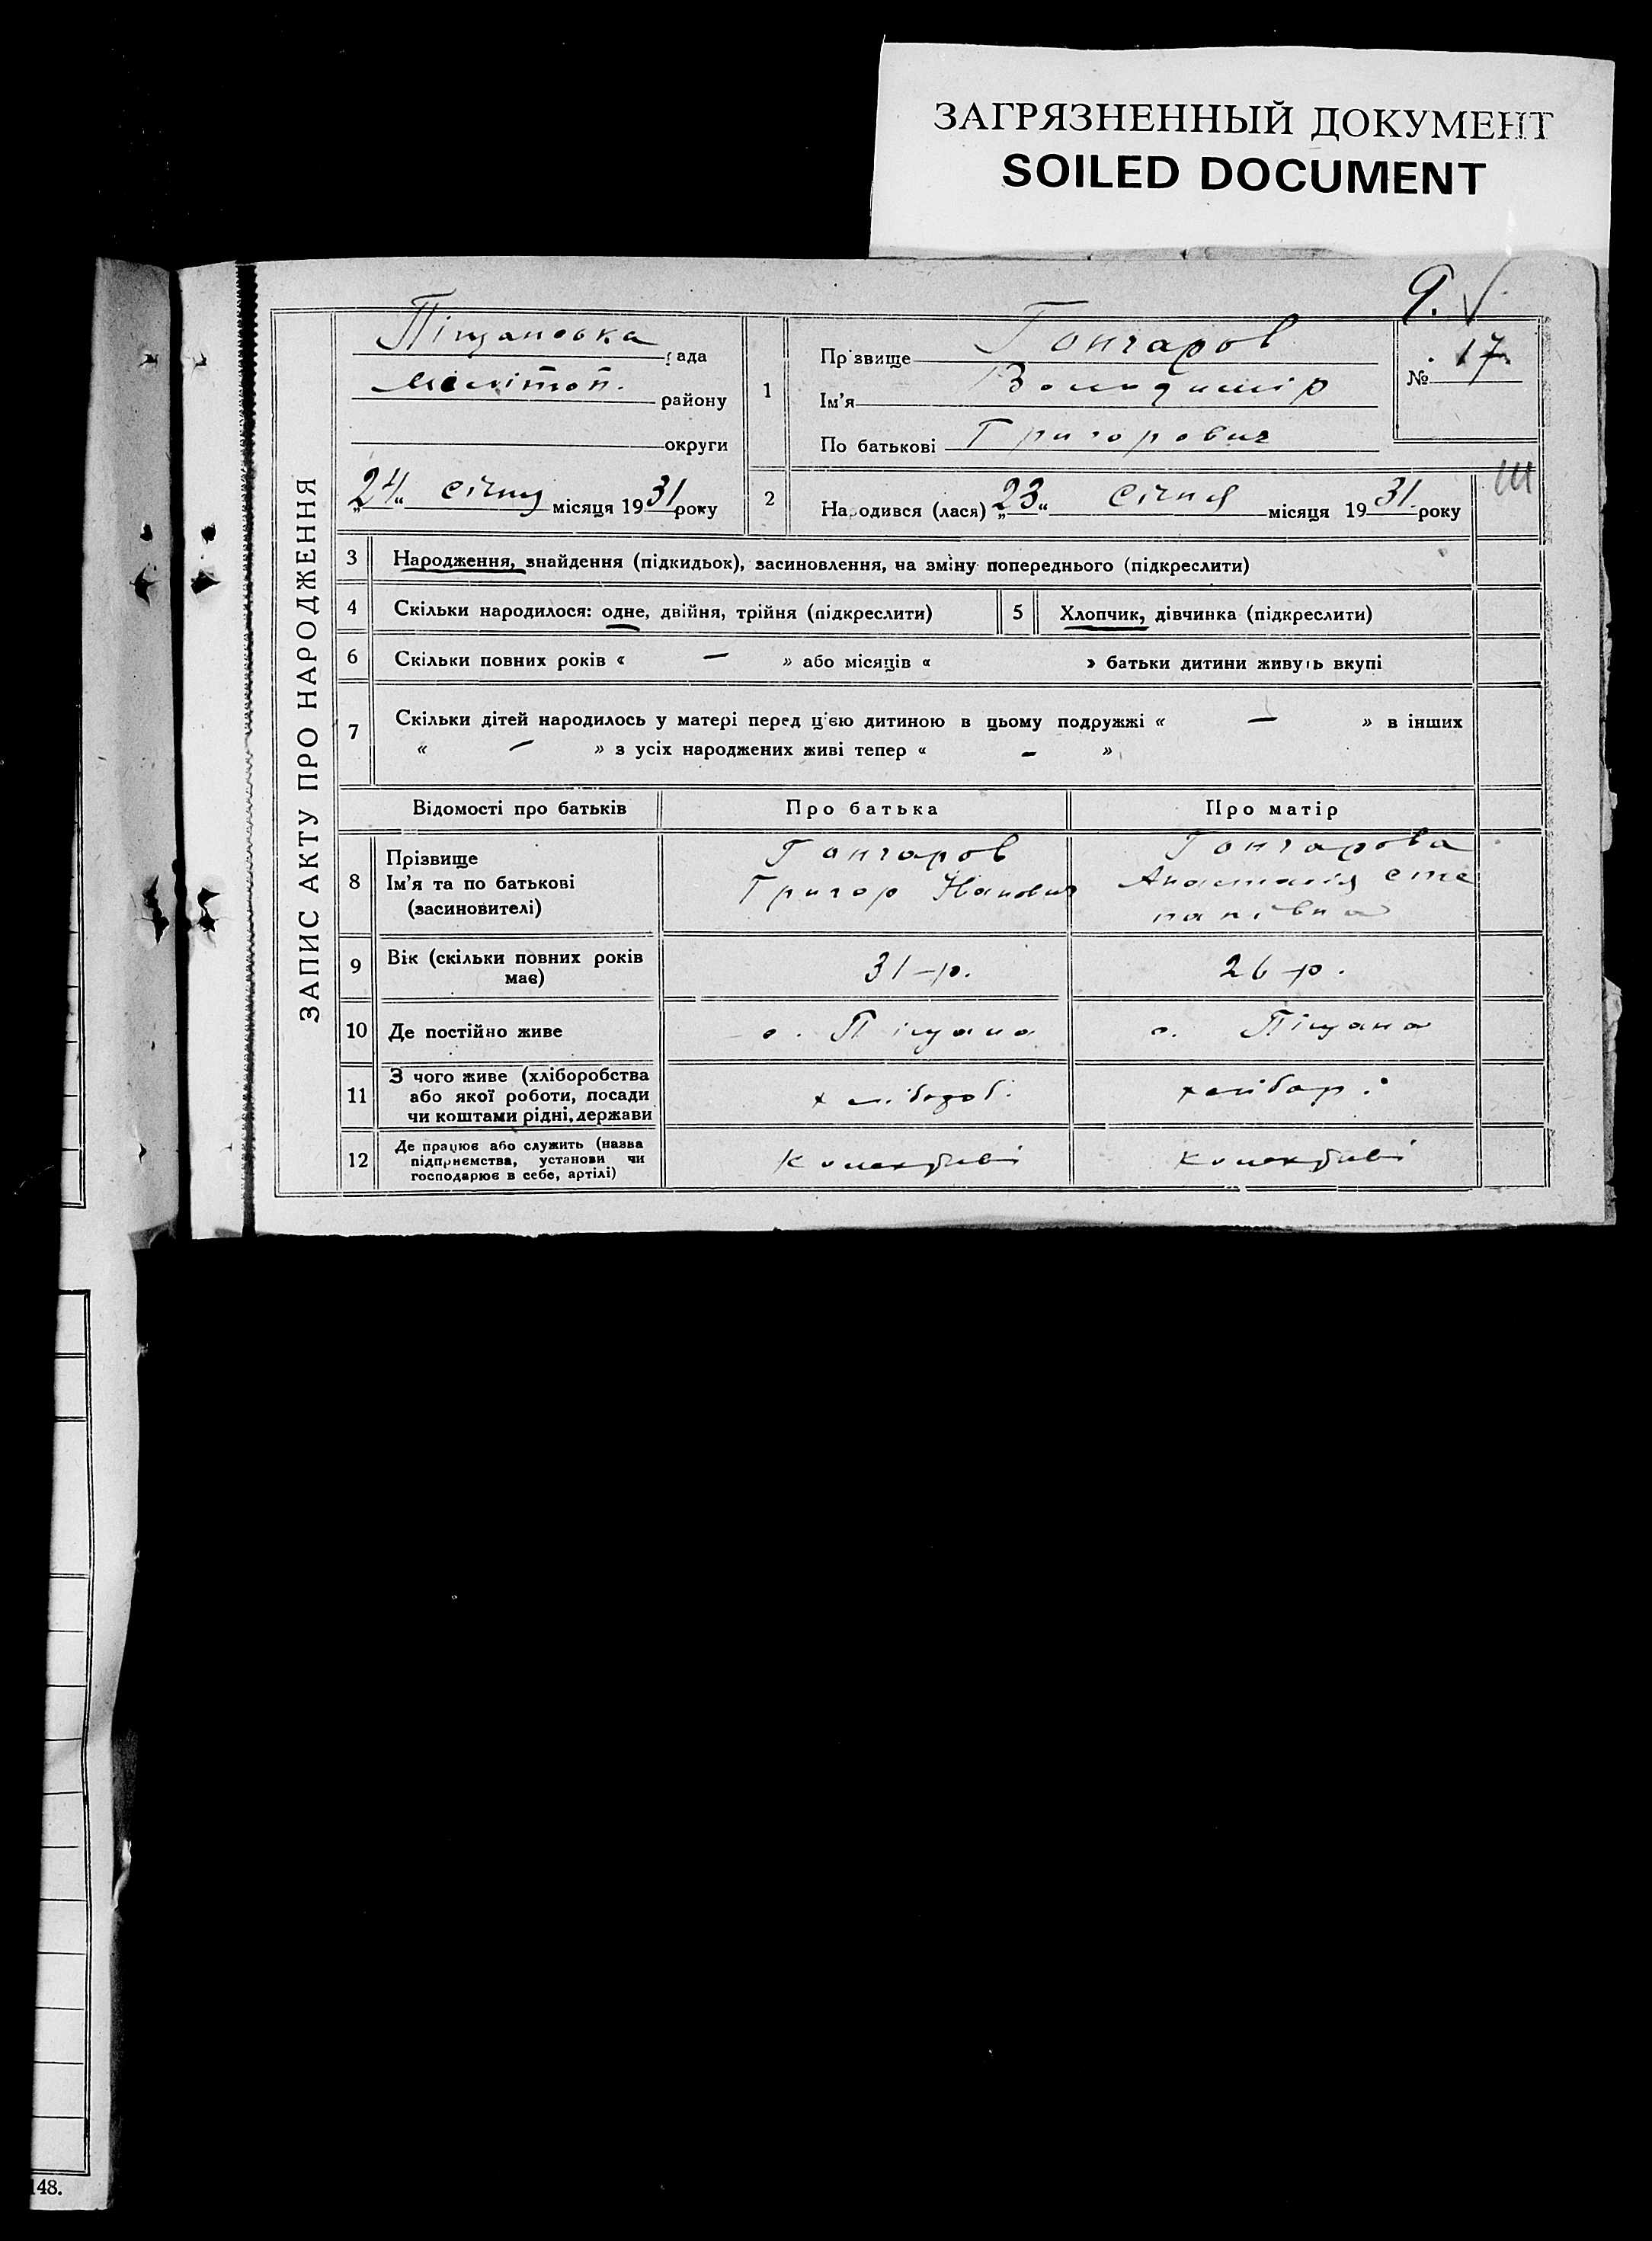 ЗАГРЯЗНЕННЫЙ ДОКУМЕНТ
SOILED DOCUMENT
9.
ЗАПИС АКТУ ПРО НАРОДЖЕННЯ
Піщановка рада
Мелітоп. району
округи
„24“ січня місяця 1931 року
1
Прізвище Гончаров
Ім'я Володимір
По батькові Григорович
№ 17
2
Народився (лася) „23“ січня місяця 1931 року
3 Народження, знайдення (підкидьок), засиновлення, на зміну попереднього (підкреслити)
4 Скільки народилося: одне, двійня, трійня (підкреслити)
5 Хлопчик, дівчинка (підкреслити)
6 Скільки повних років « — » або місяців « » батьки дитини живуть вкупі
7 Скільки дітей народилось у матері перед ц'єю дитиною в цьому подружжі « — » в інших
« — » з усіх народжених живі тепер « - »
Відомості про батьків Про батька Про матір
8
Прізвище
Ім'я та по батькові
(засиновителі)
Гончаров
Григор Іванович
Гончарова
Анастасія Сте
панівна
9
Вік (скільки повних років
має)
31-р.
26-р.
10 Де постійно живе
с. Піщана
с. Піщана
11
З чого живе (хліборобства
або якої роботи, посади
чи коштами рідні, держави
хлібороб.
хлібор.
12
Де працює або служить (назва
підприємства, установи чи
господарює в себе, артілі)
Колективі
Колективі
148.